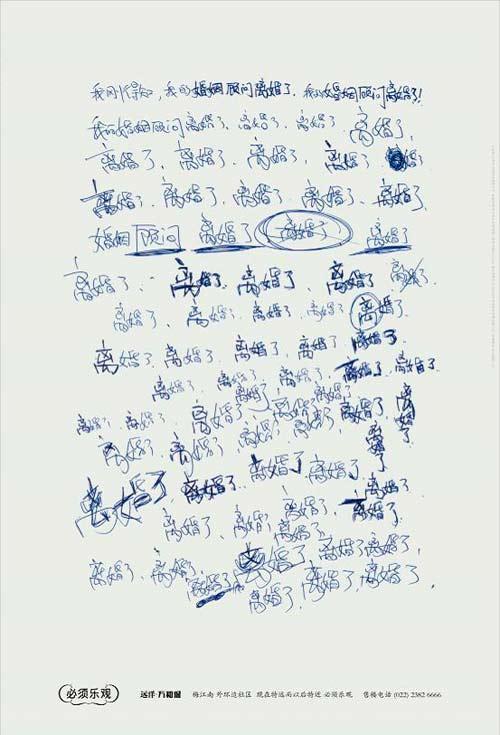 我刚得知,我的婚姻顾问离婚了,我的婚姻顾问离婚了!
我的婚姻顾问离婚了、离婚了、离婚了、离婚了、
离婚了、离婚了、离婚了、离婚了、离婚
离婚了、离婚了、离婚了、离婚了、离婚了、
婚姻顾问 离婚了 离婚了 离婚了
离婚了、离婚了、离婚了、离婚了、离婚了
离婚了、离婚了、离婚了、离婚了、离婚了、
离婚了、离婚了、离婚了、离婚了、离婚了
离婚了、离婚了、离婚了、离婚了、离婚了
离婚了、离婚了、离婚了、离婚了、离婚了、离婚了
离婚了、离婚了、离婚了、离婚了、离婚了
离婚了、离婚了、离婚了、离婚了、离婚了
离婚了、离婚了、离婚了、离婚了
离婚了、离婚了、离婚了、离婚了、离婚了
离婚了、离婚了、离婚了、离婚了、离婚了、离婚了
必须乐观
远洋·万和城 梅江南 外环边社区 现在特远而以后特近 必须乐观 售楼电话 (022) 2382 6666